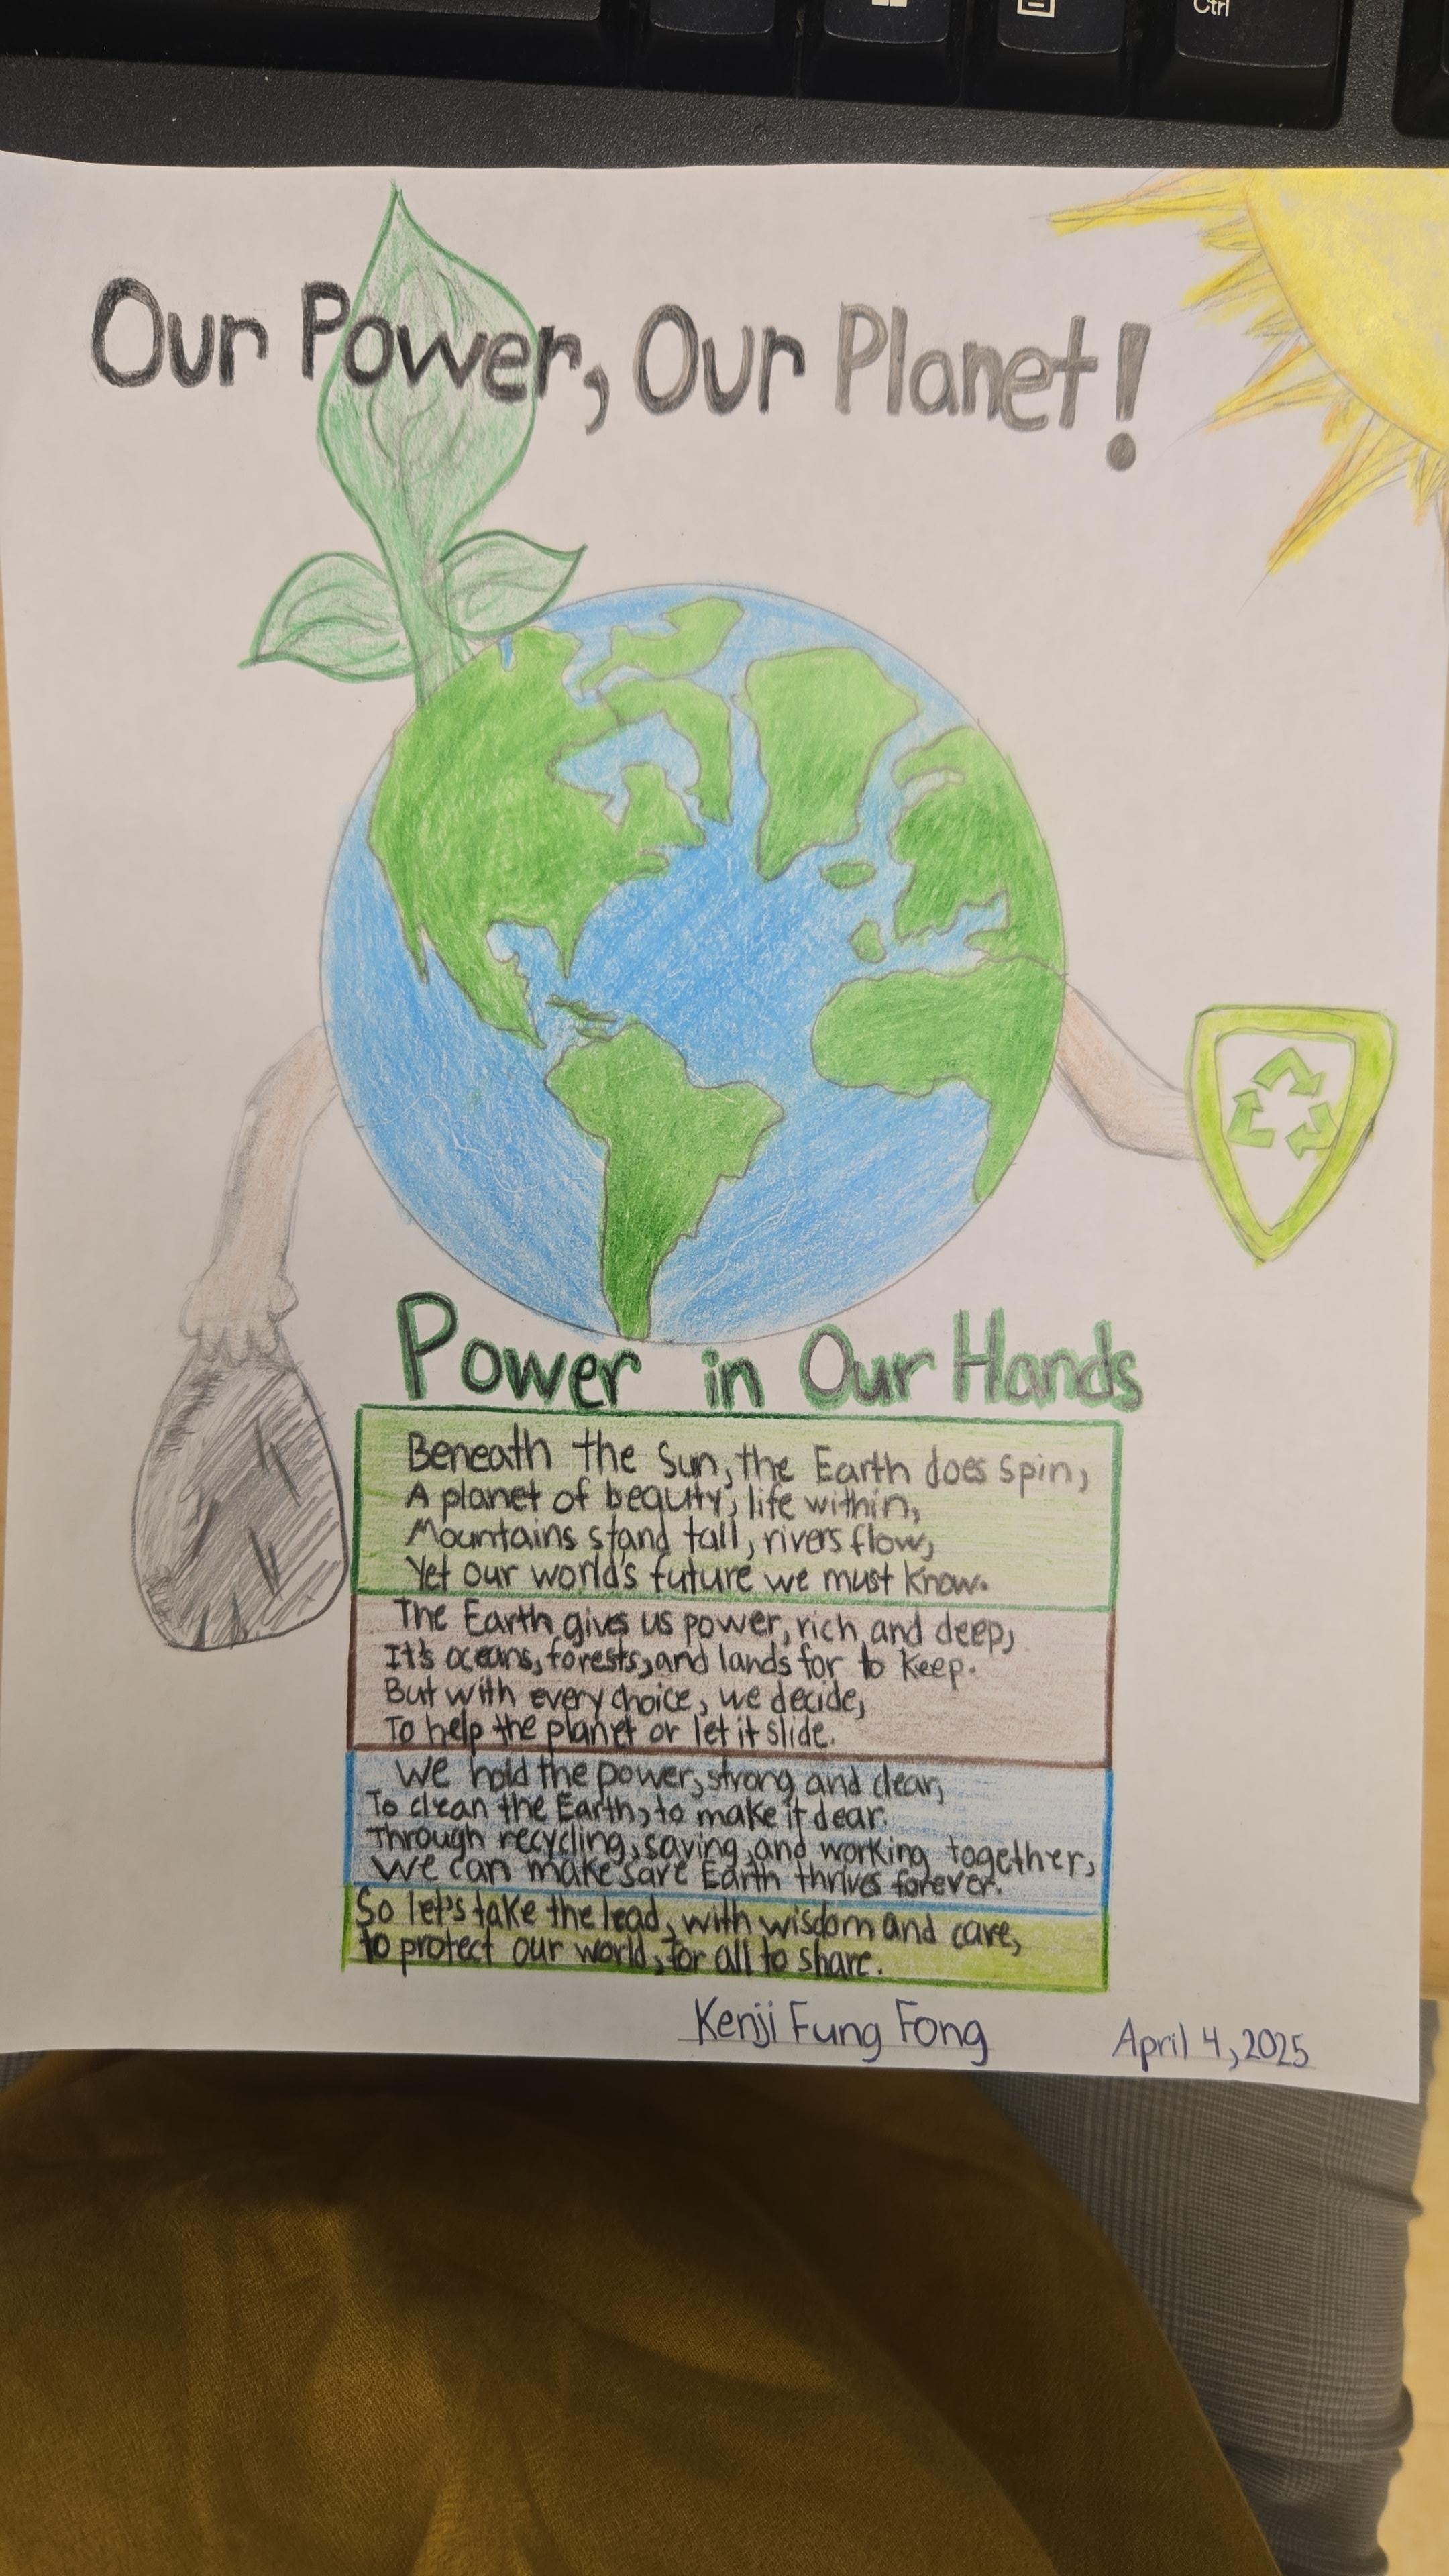 Ctrl
Our Power, Our Planet!
Power in Our Hands
Beneath the Sun, the Earth does spin,
A planet of beauty, life within,
Mountains stand tall, rivers flow,
Yet our world's future we must know.
The Earth gives us power, rich and deep,
It's oceans, forests, and lands for to keep.
But with every choice, we decide,
To help the planet or let it slide.
We hold the power, strong and clear,
To clean the Earth, to make it dear.
Through recycling, saving, and working together,
We can make sare Earth thrives forever.
So let's take the lead, with wisdom and care,
to protect our world, for all to share.
Kenji Fung Fong
April 4, 2025